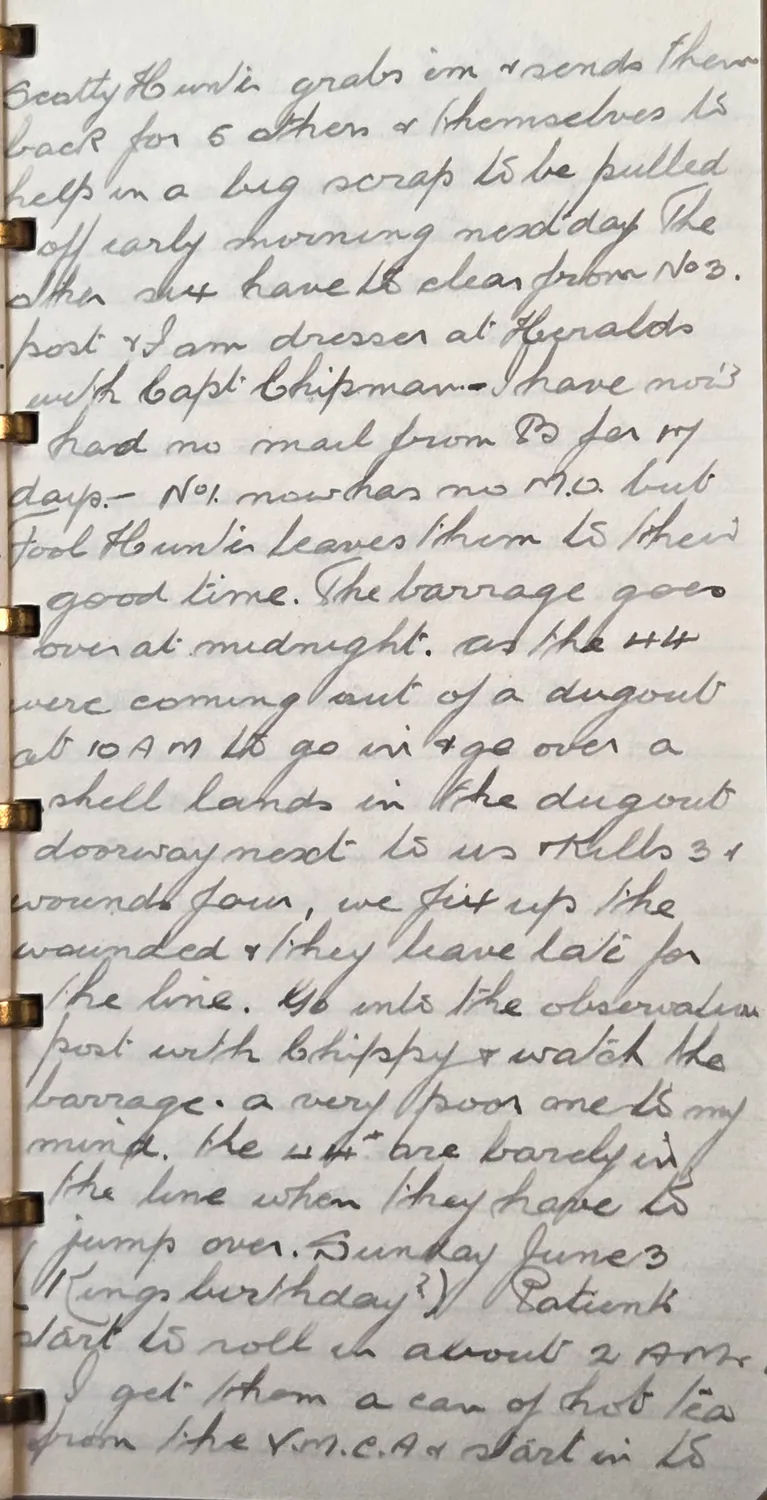 Scotty Hunter grabs em & sends them
back for 6 others & themselves to
help in a big scrap to be pulled
off early morning next day The
other six have to clear from No 3.
post & I am dresser at Heralds
with Capt Chipman - I have not
had no mail from B for 17
days. - No 1. now has no M.O. but
Fool Hunter leaves them to their
good time. The barrage goes
over at midnight. as the 44
were coming out of a dugout
at 10 AM to go in & go over a
shell lands in the dugout
doorway next to us & kills 3 &
wounds four, we fix up the
wounded & they leave late for
the line. Go into the observation
post with Chippy & watch the
barrage. a very poor one to my
mind. the 44th are barely in
the line when they have to
jump over. Sunday June 3
(Kings birthday?) Patients
start to roll in about 2 AM &
I get them a can of hot tea
from the Y.M.C.A & start in to